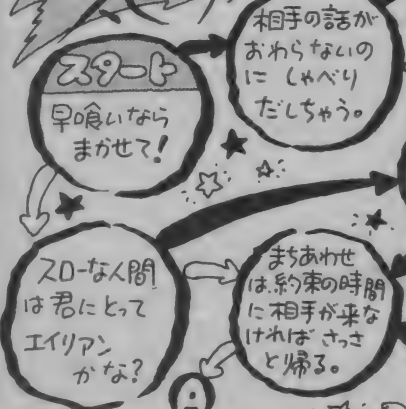 スタート
早喰いなら
まかせて!
相手の話が
おわらないの
に しゃべり
だしちゃう。
スローな人間
は君にとって
エイリアン
かな?
まちあわせ
は、約束の時間
に相手が来な
ければ さっさ
と帰る。